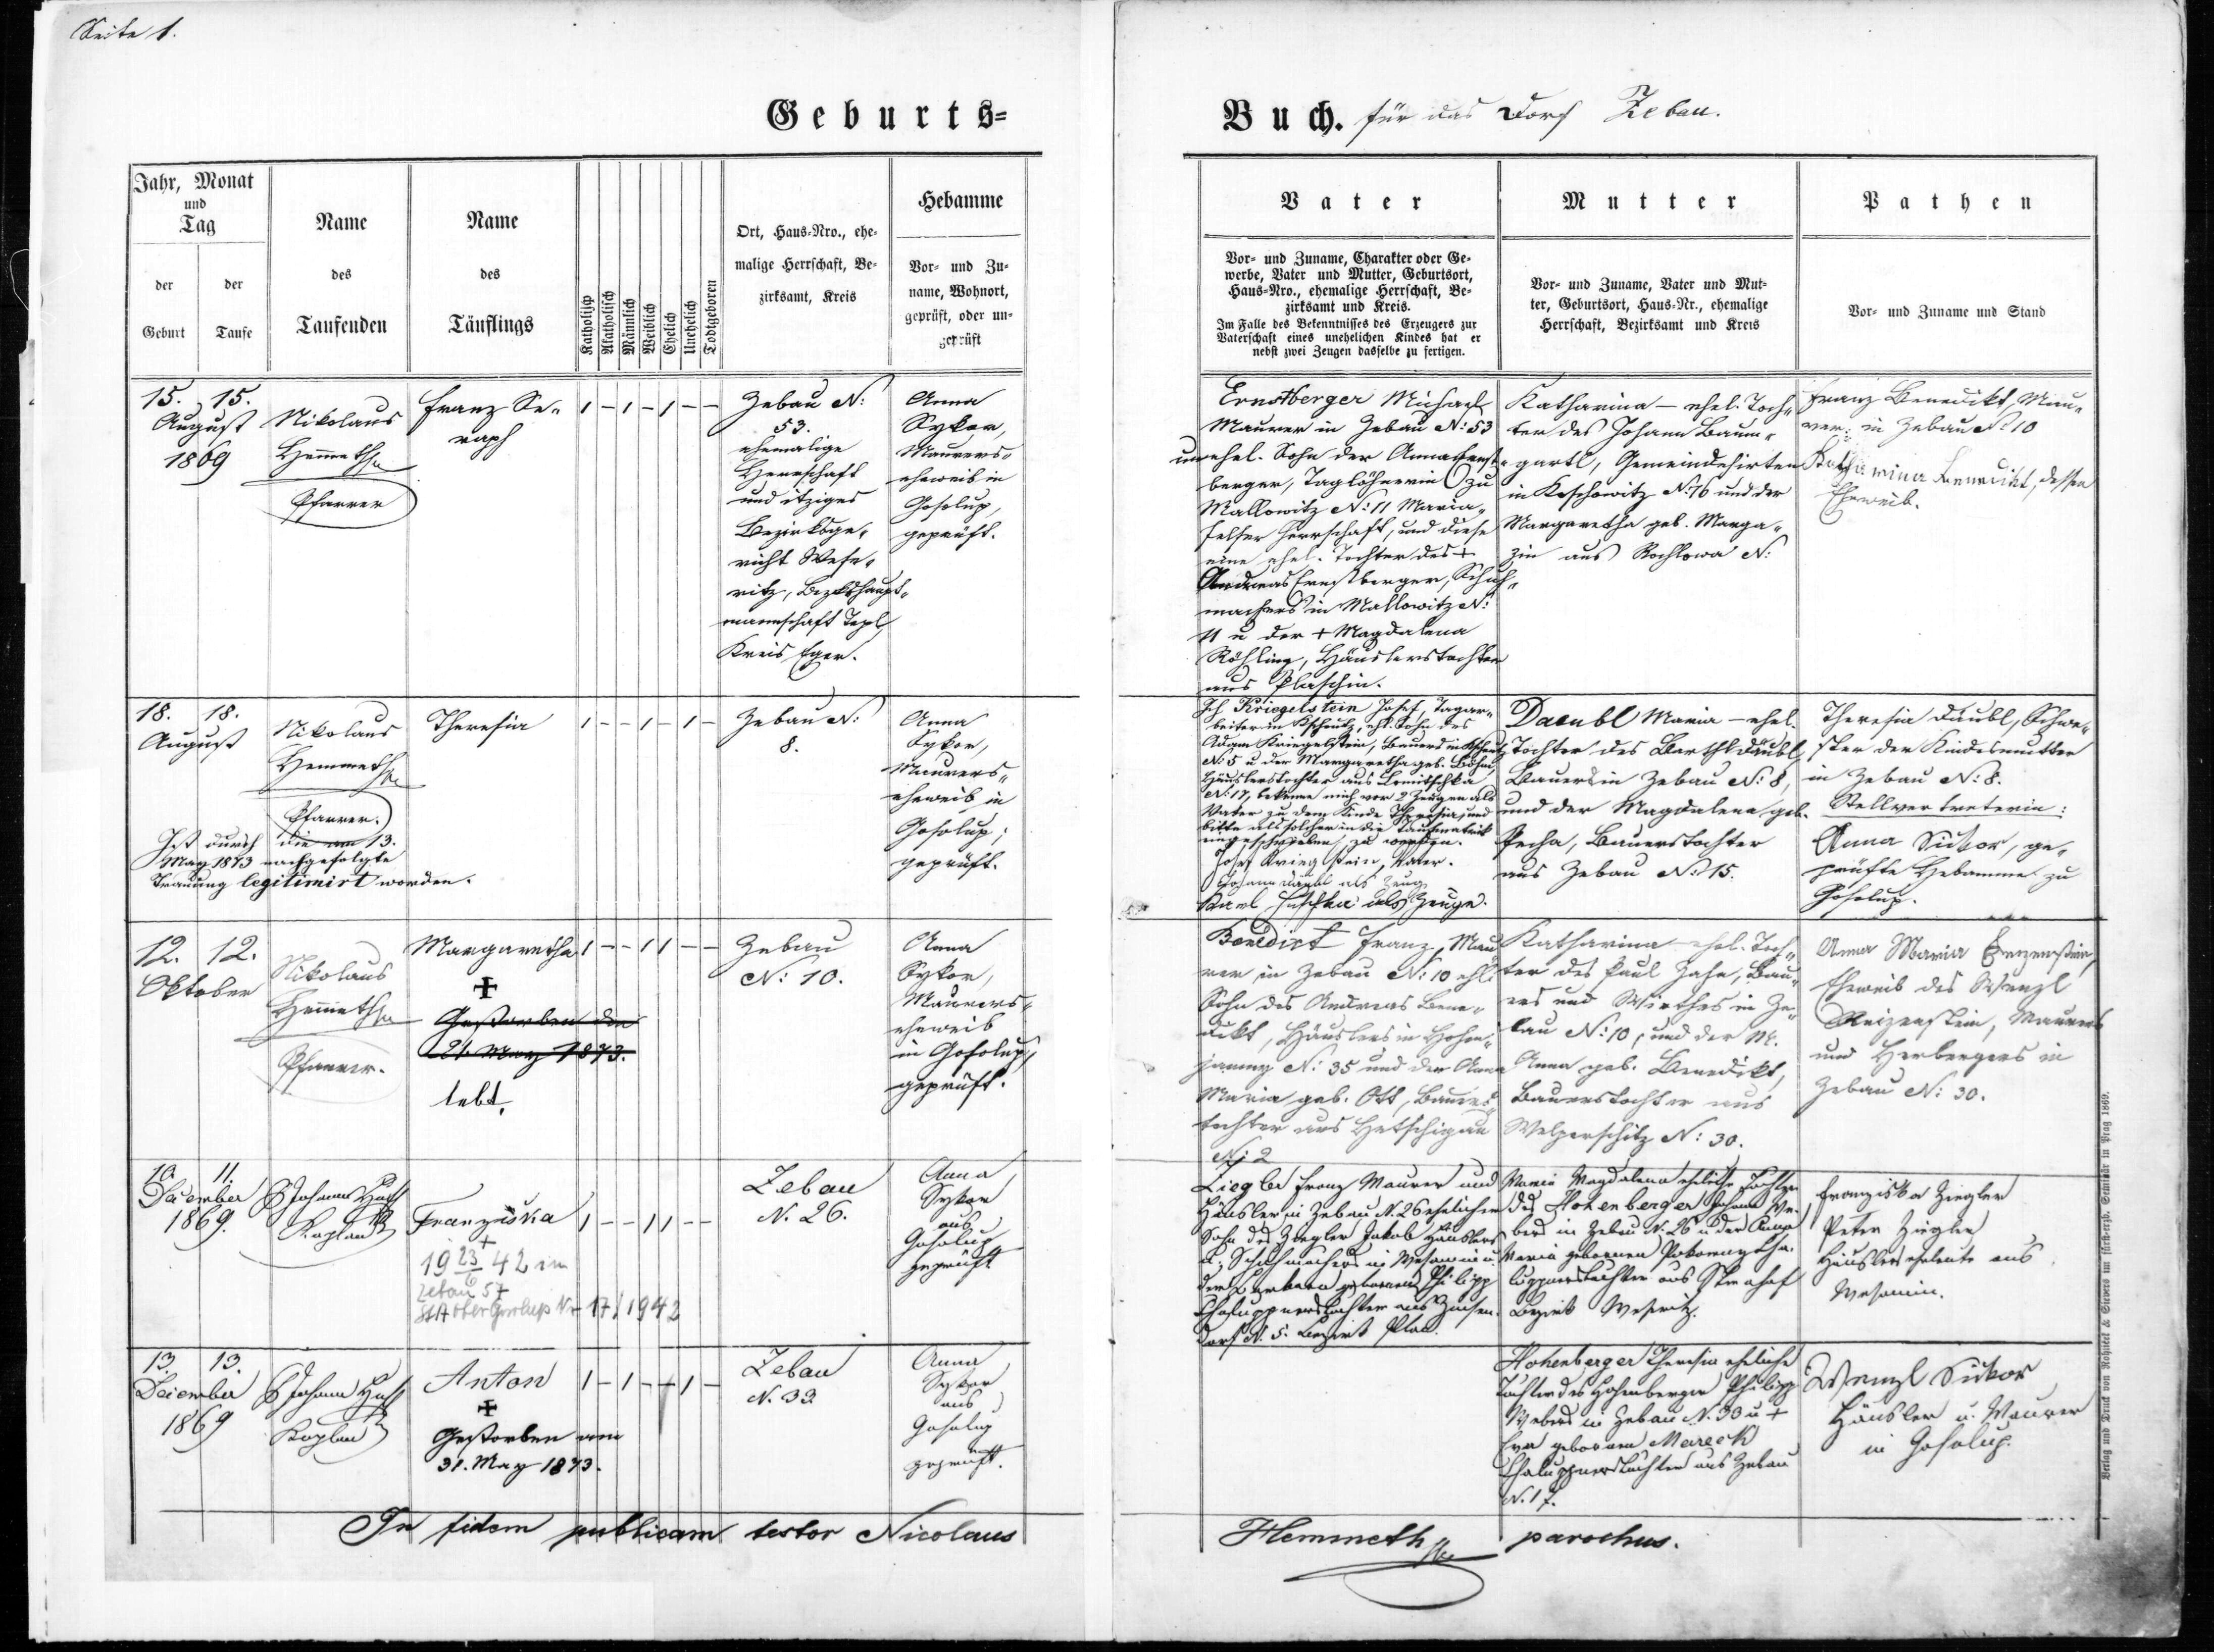 Seite 1.
Geburts-
Buch. für das Dorf Zebau.
Jahr, Monat
und
Tag
der
Geburt
der
Taufe
Name
des
Taufenden
Name
des
Täuflings
Katholisch
Akatholisch
Männlich
Weiblich
Ehelich
Unehelich
Todtgeboren
Ort, Haus-Nro., ehe-
malige Herrschaft, Be-
zirksamt, Kreis
Hebamme
Vor- und Zu-
name, Wohnort,
geprüft, oder un-
geprüft
Vater
Vor- und Zuname, Charakter oder Ge-
werbe, Vater und Mutter, Geburtsort,
Haus-Nro., ehemalige Herrschaft, Be-
zirksamt und Kreis.
Im Falle des Bekenntnisses des Erzeugers zur
Vaterschaft eines unehelichen Kindes hat er
nebst zwei Zeugen dasselbe zu fertigen.
Mutter
Vor- und Zuname, Vater und Mut-
ter, Geburtsort, Haus-Nr., ehemalige
Herrschaft, Bezirksamt und Kreis
Pathen
Vor- und Zuname und Stand
15. 15.
August
1869
Nikolaus
Hemmeth
Pfarrer
Franz Se-
raph
1 – 1 – 1 – –
Zebau N:
53.
ehemalige
Herrschaft
und itziges
Bezirksge-
richt Wese-
ritz, Bezkshaupt-
mannschaft Tepl,
Kreis Eger.
Anna
Sykor,
Maurers-
eheweib in
Gosolup,
geprüft.
Ernstberger Michael
Maurer in Zebau N: 53
unehel. Sohn der Anna Ernst-
berger, Taglöhnerin zu
Mallowitz N: 11 Maria-
felser Herrschaft, und diese
eine ehel. Tochter des +
Andreas Ernstberger, Schuh-
machers in Mallowitz N:
11 u der + Magdalena
Röhling, Häuslerstochter
aus Plaschin.
Katharina – ehel. Toch-
ter des Johann Baum-
gartl, Gemeindehirten
in Koschowitz N: 16 und der
Margaretha geb. Marga-
zin aus Rochlowa N:
Franz Benedikt, Mau-
rer in Zebau N: 10
Katharina Benedikt, dessen
Eheweib.
18. 18.
August
Nikolaus
Hemmeth
Pfarrer.
Ist durch die am 13.
May 1873 nachgefolgte
Trauung legitimirt worden.
Theresia
1 – – 1 – 1 –
Zebau N:
8.
Anna
Sykor,
Maurers-
eheweib in
Gosolup;
geprüft.
Ich Kriegelstein Josef, Tagar-
beiter in Kschentz, ehl. Sohn des
Adam Kriegelstein, Bauers in Kschentz
N: 5 u der Margaretha geb. Böhm,
Häuslerstochter aus Lomitschka
N: 17, bekenne mich vor 2 Zeugen als
Vater zu dem Kinde Theresia, und
bitte als solcher in die Taufmatrik
eingeschrieben zu werden.
Josef Kriegelstein, Vater.
Johann Däubl als Zeug
Karl als Zeuge.
Daeubl Maria – ehel.
Tochter des Barthl Däubl,
Bauers in Zebau N: 8,
und der Magdalena geb.
Pecha, Bauerstochter
aus Zebau N: 15.
Theresia Däubl, Schwe-
ster der Kindesmutter
in Zebau N: 8.
Stellvertreterin:
Anna Sikor, ge-
prüfte Hebamme zu
Gosolup.
12. 12.
Oktober
Nikolaus
Hemmeth
Pfarrer.
Margaretha
+
Gestorben den
21. May 1873.
lebt.
1 – – 1 1 – –
Zebau
N: 10.
Anna
Sykor,
Maurers-
eheweib
in Gosolup,
geprüft.
Benedict Franz, Mau-
rer in Zebau N: 10 ehl.
Sohn des Andreas Bene-
dikt, Häuslers in Hohen-
jamny N: 35 und der Anna
Maria geb. Ott, Bauers-
tochter aus Hetschigau
N: 2
Katharina – ehel. Toch-
ter des Paul Zahn, Bau-
ers und Wirthes in Ze-
bau N: 10, und der M.
Anna geb. Benedikt,
Bauerstochter aus
Welperschitz N: 30.
Anna Maria
Eheweib des Wenzl
Reizenstein, Maurers
und Herbergers in
Zebau N: 30.
10. 11.
December
1869.
Johann
Kaplan
Franziska
+
19 23/6 42 in
Zebau 57
StA Ober Gosolup Nr 17/1942
1 – – 1 1 – –
Zebau
N. 26.
Anna
Sykor
aus
Gosolup
geprüft
Ziegler Franz Maurer und
Häusler in Zebau N. 26 ehelicher
Sohn des Ziegler Jakob Häuslers
u. Schuhmachers in Wesamin u.
der Barbara gebornen Philipp
Chaluppnerstochter aus Zinsen-
dorf N. 5. Bezirk Plan.
Maria Magdalena eheliche Tochter
des Hohenberger Johann We-
bers in Zebau N. 26 u der Anna
Maria gebornen Pokorny Cha-
luppnerstochter aus
Bezirk Weseritz.
Franziska Ziegler
Peter Ziegler
Häuslerseheleute aus
Wesamin.
13. 13.
December
1869
Johann
Kaplan
Anton
+
Gestorben am
31. May 1873.
1 – 1 – – 1 –
Zebau
N. 33
Anna
Sykor
aus
Gosolup
geprüft.
Hohenberger Theresia eheliche
Tochter des Hohenberger Philipp
Webers in Zebau N. 33 u +
Eva gebornen Mareck
Chaluppnerstochter aus Zebau
N. 17.
Wenzl Sikor
Häusler u. Maurer
in Gosolup.
In fidem publicam testor Nicolaus
Hemmeth parochus.
Verlag und Druck von Rohlicek & Sievers im fürsterzb. Seminär in Prag 1869.